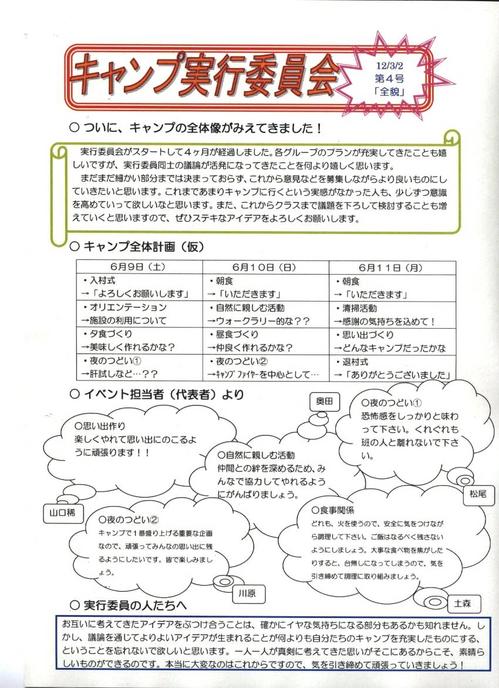 キャンプ実行委員会
12/3/2
第4号
「全貌」
○ ついに、キャンプの全体像がみえてきました！
実行委員会がスタートして4ヶ月が経過しました。各グループのプランが充実してきたことも嬉
しいですが、実行委員同士の議論が活発になってきたことを何より嬉しく思います。
まだまだ細かい部分までは決まっておらず、これから意見などを募集しながらより良いものに
していきたいと思います。これまであまりキャンプに行くという実感がなかった人も、少しずつ意識
を高めていって欲しいなと思います。また、これからクラスまで議題を下ろして検討することも増
えていくと思いますので、ぜひステキなアイデアをよろしくお願いします。
○ キャンプ全体計画（仮）
6月9日（土） 6月10日（日） 6月11日（月）
・入村式 ・朝食 ・朝食
→「よろしくお願いします」 →「いただきます」 →「いただきます」
・オリエンテーション ・自然に親しむ活動 ・清掃活動
→施設の利用について →ウォークラリー的な？？ →感謝の気持ちを込めて！
・夕食づくり ・昼食づくり ・思い出づくり
→美味しく作れるかな？ →仲良く作れるかな？ →どんなキャンプだったかな
・夜のつどい① ・夜のつどい② ・退村式
→肝試しなど…？？ →キャンプファイヤーを中心として… →「ありがとうございました」
○ イベント担当者（代表者）より
○思い出作り
楽しくやれて思い出にのこるよ
うに頑張ります！！
山口稀
奥田
○自然に親しむ活動
仲間との絆を深めるため、み
んなで協力してやれるように
がんばりましょう。
○夜のつどい①
恐怖感をしっかりと味わ
って下さい。くれぐれも
班の人と離れないで下さ
い。
松尾
○夜のつどい②
キャンプで1番盛り上げる重要な企画
なので、頑張ってみんなの思い出に残
るようにしたいです。皆で楽しみまし
ょう。
川原
○食事関係
どれも、火を使うので、安全に気をつけなが
ら調理して下さい。ご飯はなるべく残さない
ようにしましょう。大事な食べ物を焦がした
りすると、台無しになってしまうので、気を
引き締めて調理に取り組みましょう。
土森
○ 実行委員の人たちへ
お互いに考えてきたアイデアをぶつけ合うことは、確かにイヤな気持ちになる部分もあるかも知れません。し
かし、議論を通じてよりよいアイデアが生まれることが何よりも自分たちのキャンプを充実したものにする、
ということを忘れないで欲しいと思います。一人一人が真剣に考えてきた思いがそこにあるからこそ、素晴ら
しいものができるのです。本当に大変なのはこれからですので、気を引き締めて頑張っていきましょう！